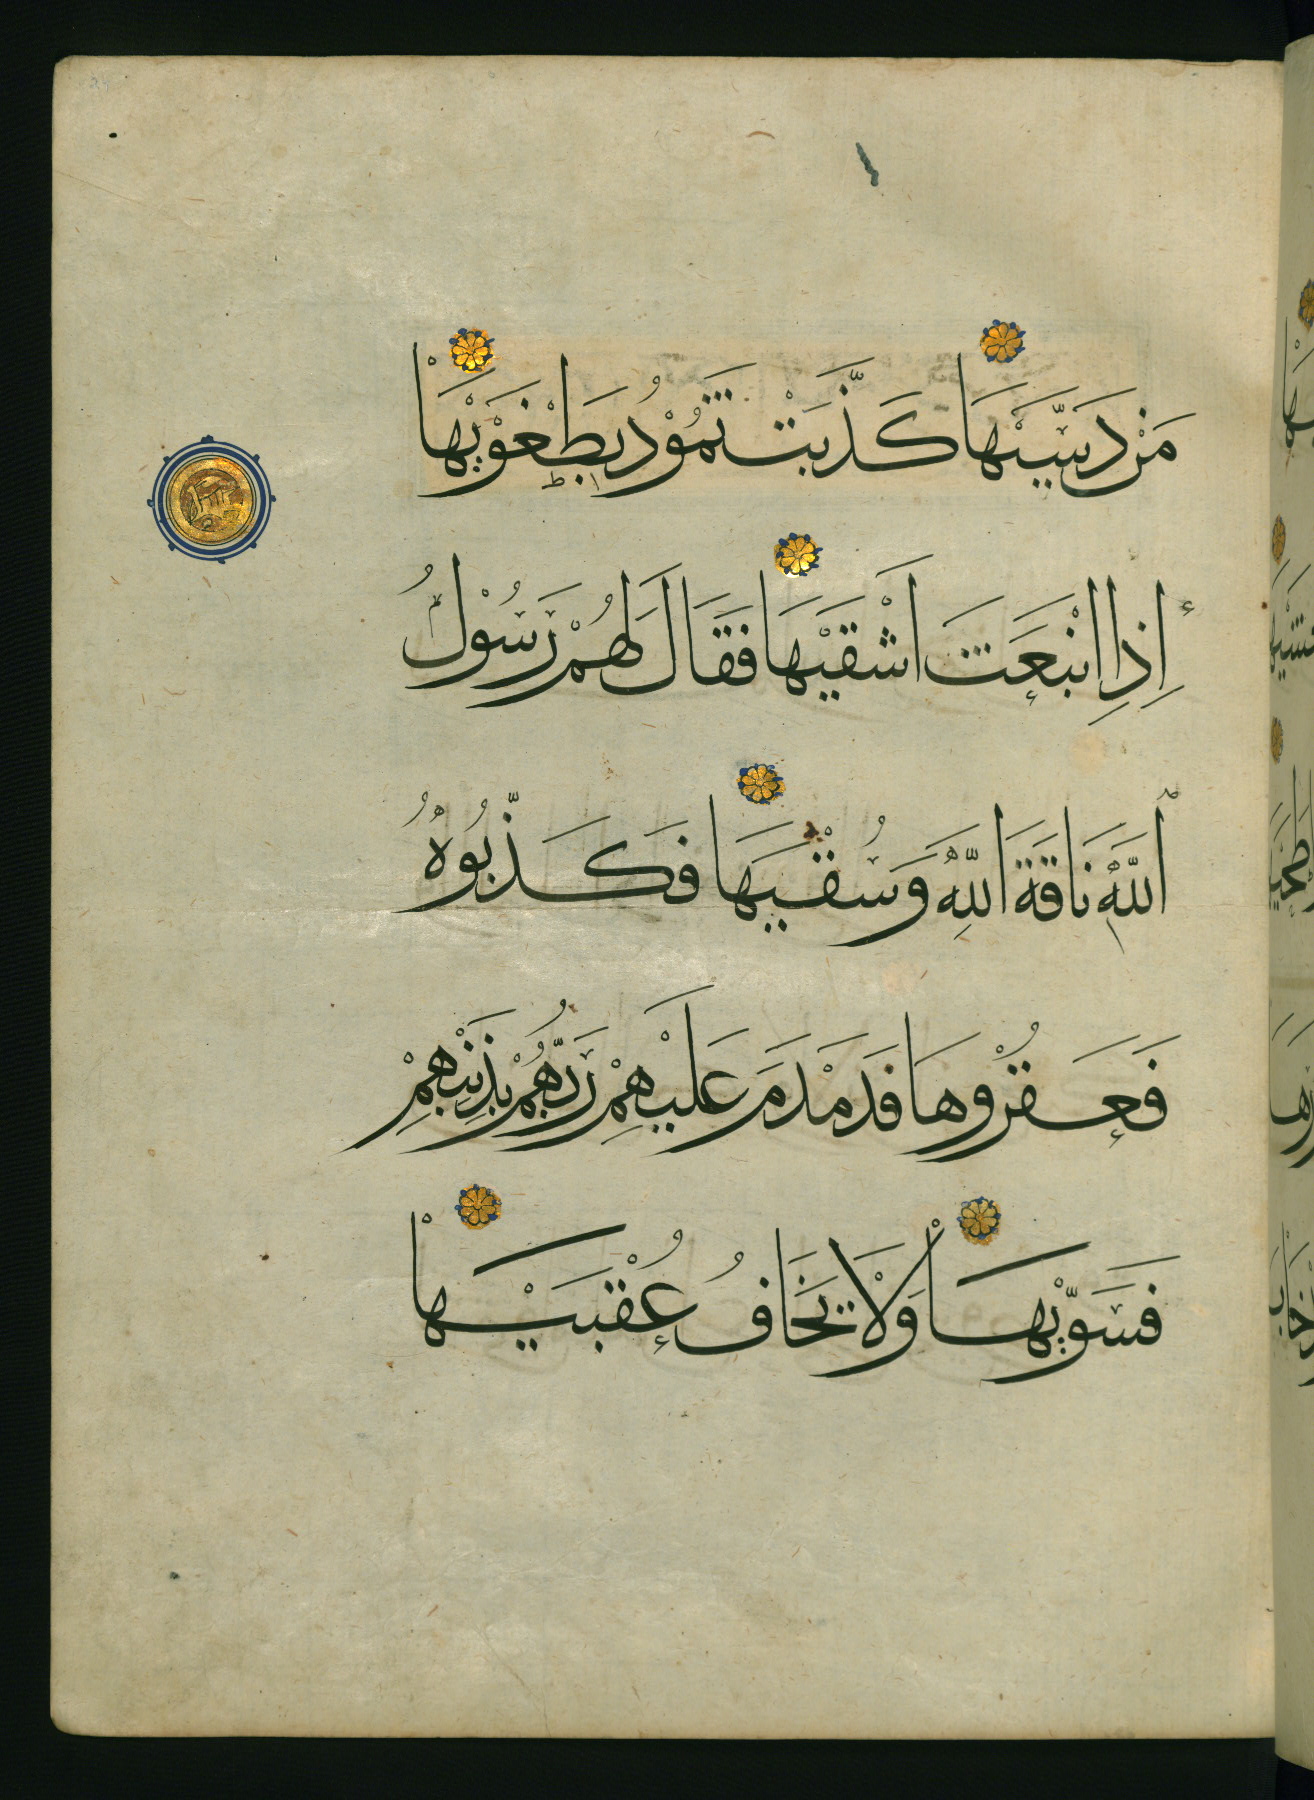 مَنْ دَسّٰيهَا كَذَّبَتْ ثَمُوْدُ بِطَغْوٰيهَا
اِذِ انْبَعَثَ اَشْقٰيهَا فَقَالَ لَهُمْ رَسُوْلُ
اللّٰهِ نَاقَةَ اللّٰهِ وَسُقْيٰهَا فَكَذَّبُوْهُ
فَعَقَرُوْهَا فَدَمْدَمَ عَلَيْهِمْ رَبُّهُمْ بِذَنْبِهِمْ
فَسَوّٰيهَا وَلَا يَخَافُ عُقْبٰيهَا